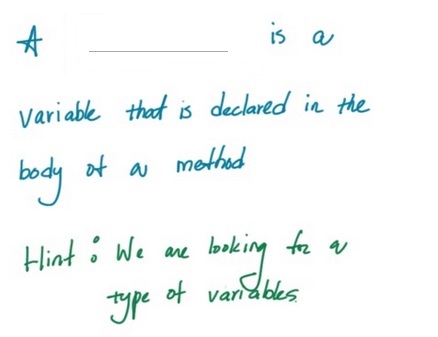 A ____________ is a
variable that is declared in the
body of a method
Hint : We are looking for a
type of variables.